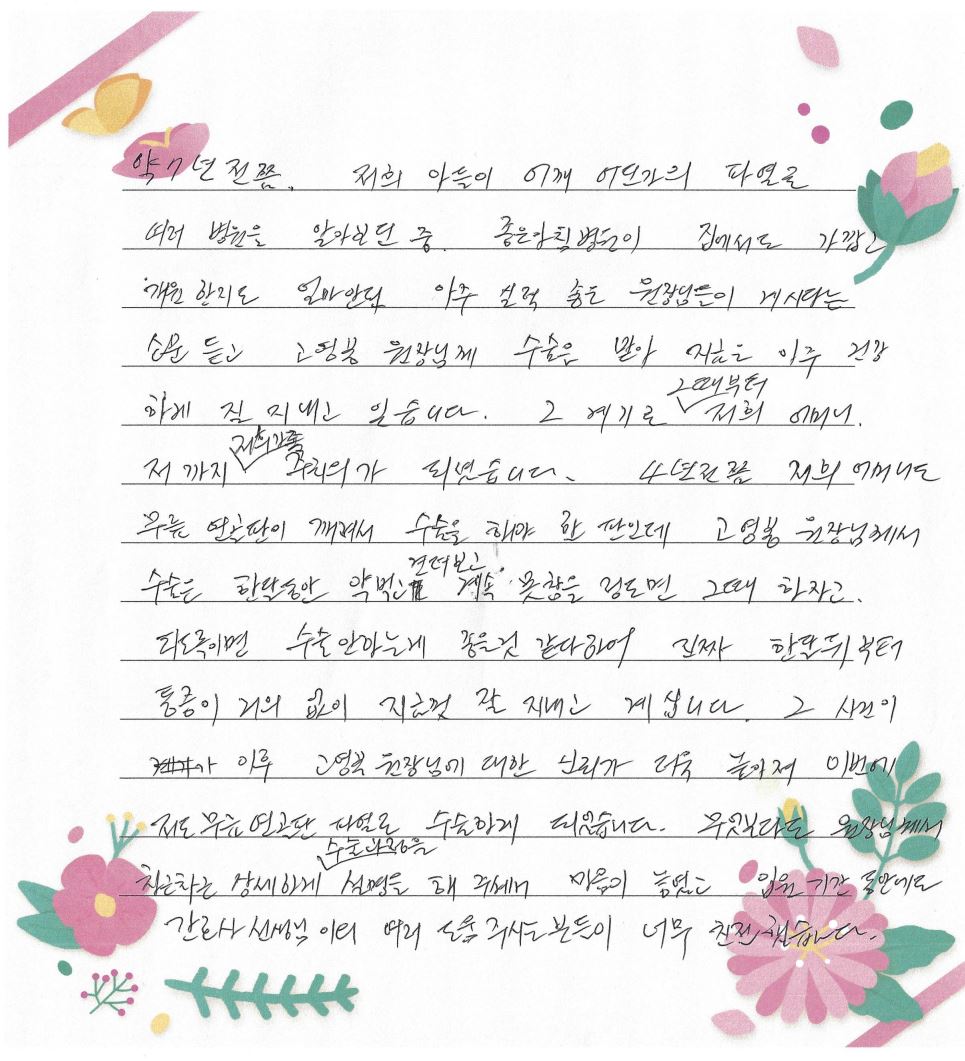 약 7년 전쯤. 저희 아들이 어깨 어딘가의 파열로
여러 병원을 알아보던 중. 좋은아침병원이 집에서도 가깝고
개원 한지도 얼마안되 아주 실력 좋은 원장님들이 계시다는
소문 듣고 고영봉 원장님께 수술은 받아 지금은 아주 건강
하게 잘 지내고 있습니다. 그 계기로 그때부터 저희 어머니.
저 까지 저희가족 주치의가 되셨습니다. 4년전쯤 저희 어머니도
무릎 연골판이 깨져서 수술을 해야 한 판인데 고영봉 원장님께서
수술은 한달동안 약먹고 견뎌보고 계속 못참을 정도면 그때 하자고.
되도록이면 수술안하는게 좋을것 같다하여 진짜 한달뒤부터
통증이 거의 없이 지금껏 잘 지내고 계십니다. 그 사건이
이후 고영봉 원장님에 대한 신뢰가 더욱 높아져 이번에
저도 무릎연골판 파열로 수술하게 되었습니다. 무엇보다도 원장님께서
집도하는 수술과정을 상세하게 설명을 해 주셔서 마음이 놓였고 입원 기간 동안에도
간호사선생님 이외 여러 도움 주시는분들이 너무 친절 했습니다.